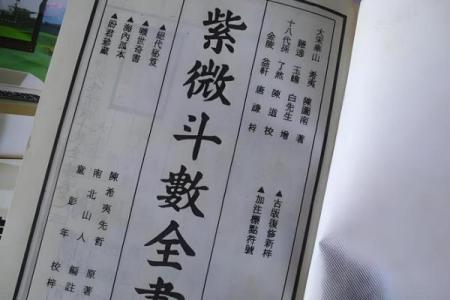 大宋華山 希夷 陳圖南 著
隱逸 玉蟾 白先生 增
十八代孫 了然 陳道 校
金陵 益軒 唐謙 梓
▲古版復修新梓
▲加注標點符號
紫微斗數全書
▲絕代秘笈
▲曠世奇書
▲海內孤本
▲盼君慧藏
陳希夷先哲 原著
南北山人 編註
黨彭年 校梓